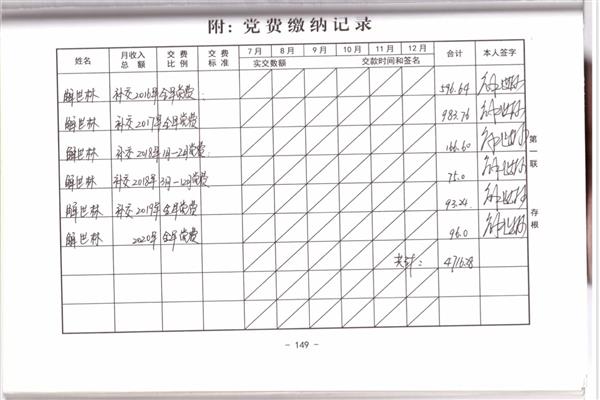 附：党费缴纳记录
姓名 月收入总额 交费比例 交费标准 7月 8月 9月 10月 11月 12月 合计 本人签字
实交数额 交款时间和签名
解世林 补交2016年全年党费 596.64
解世林 补交2017年全年党费 983.76
解世林 补交2018年1月—2月党费 166.60
解世林 补交2018年3月—12月党费 75.0
解世林 补交2019年全年党费 93.24
解世林 2020年全年党费 96.0
共计：
第一联 存根
- 149 -